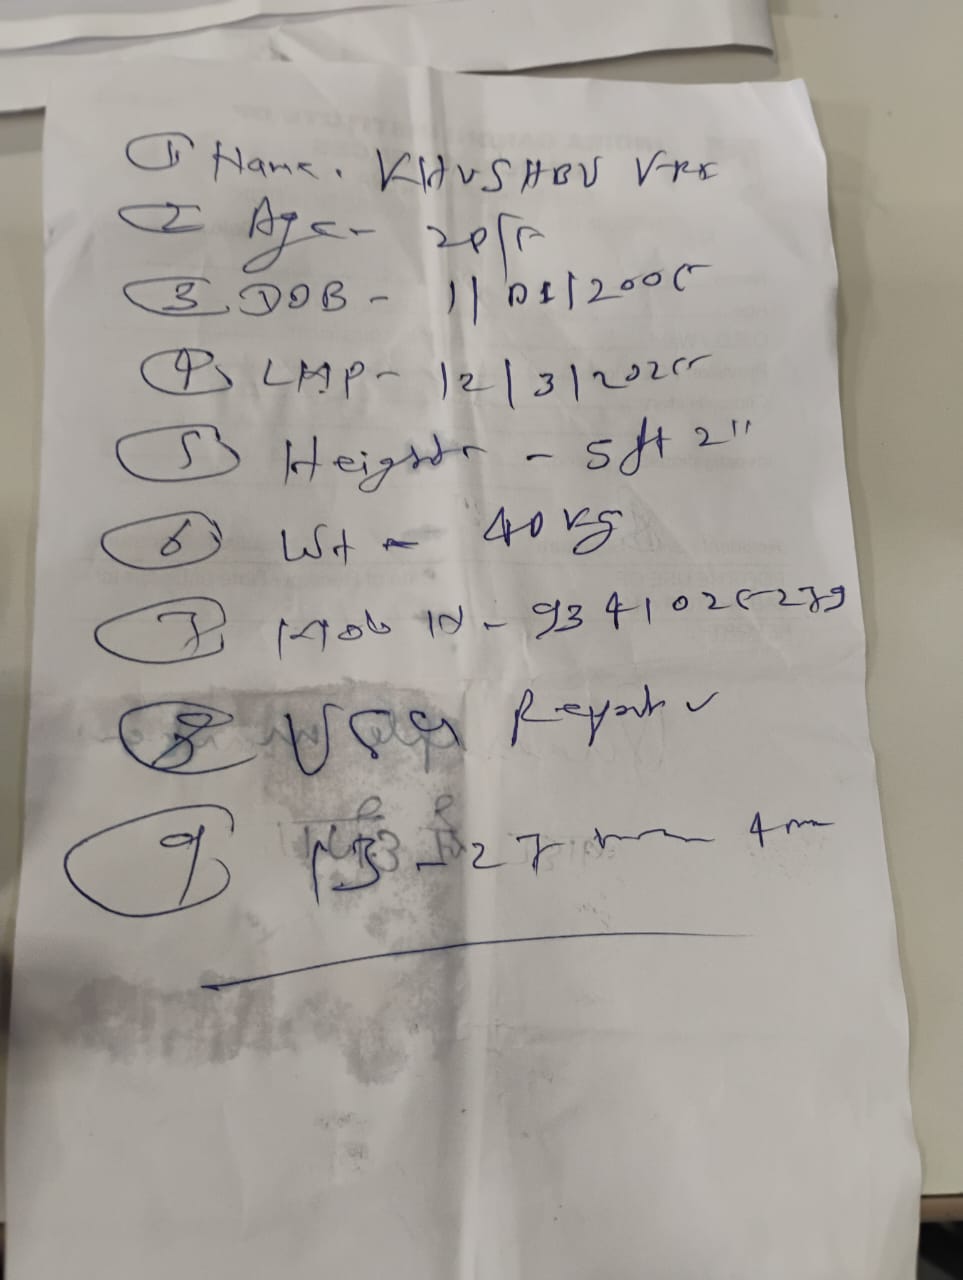 ① Name. KHUSHBU
② Age - 20yr
③ DOB - 11/01/2005
④ LMP - 12/3/2025
⑤ Height - 5ft 2"
⑥ Wt - 40 kg
⑦ Mob N - 9341025279
⑧ USG Report ✓
⑨ - 27 4 mm